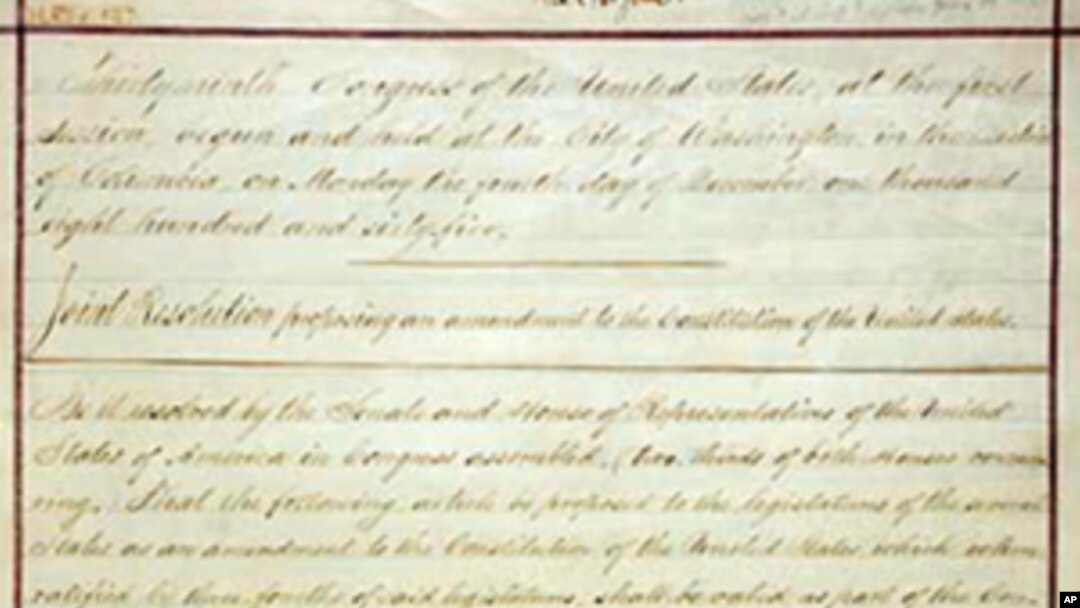 Thirty-ninth Congress of the United States, at the first
session, begun and held at the City of Washington, in the District
of Columbia, on Monday the fourth day of December, one thousand
eight hundred and sixty-five.
Joint Resolution proposing an amendment to the Constitution of the United States.
Be it resolved by the Senate and House of Representatives of the United
States of America in Congress assembled, (two thirds of both Houses concur-
ring,) That the following article be proposed to the legislatures of the several
States as an amendment to the Constitution of the United States, which when
ratified by three-fourths of said legislatures, shall be valid as part of the Con-
AP